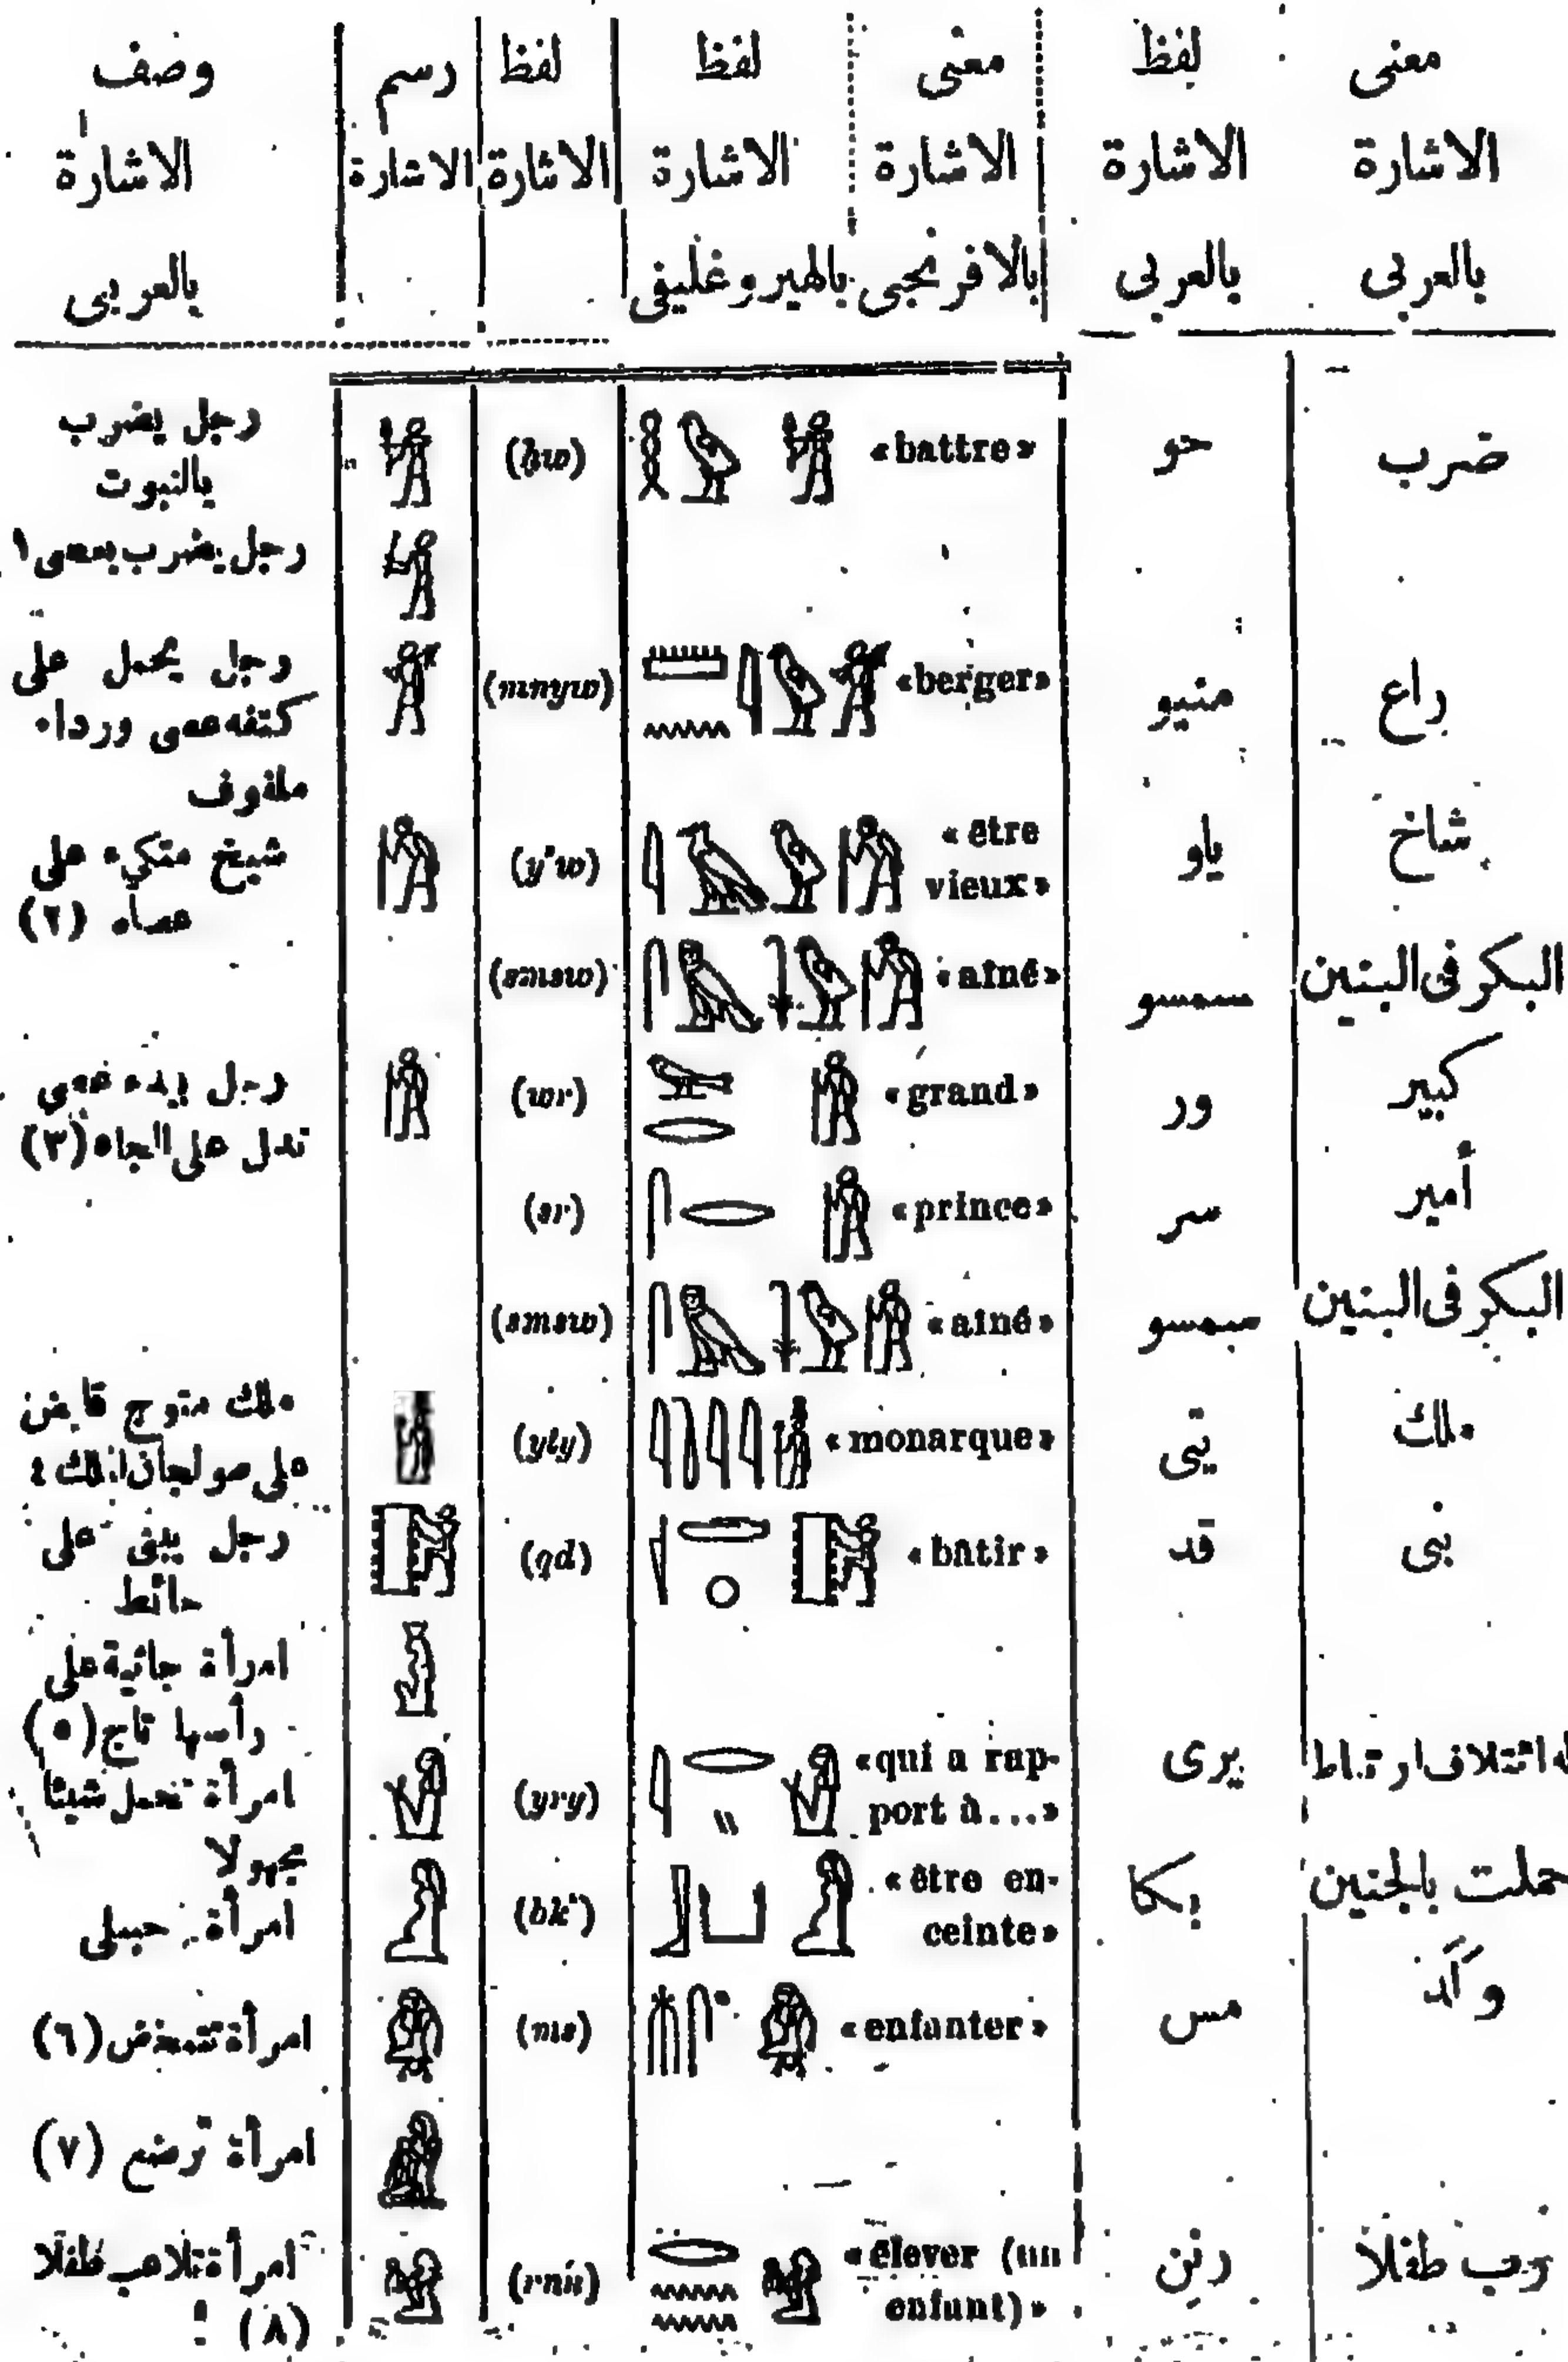 معنى لفظ معنى لفظ لفظ رسم وصف
الاشارة الاشارة الاشارة الاشارة الاشارة الاشارة الاشارة
بالعربى بالعربى بالافرنجى بالهيروغليفى بالعربى
ضرب حو «battre» (ḥw) رجل يضرب
بالنبوت
رجل يضرب بعصى ١
راع منيو «berger» (mnyw) رجل يحمل على
كتفه عصى ورداء
ملفوف
شاخ ياو «être vieux» (y'w) شيخ متكىء على
عصاه (٢)
البكر فى البنين سمسو «aîné» (smsw)
كبير ور «grand» (wr) رجل بيده عصى
تدل على الجاه (٣)
أمير سر «prince» (sr)
البكر فى البنين سمسو «aîné» (smsw)
ملك يتى «monarque» (yty) ملك متوج قابض
على صولجان الملك ٤
بنى قد «bâtir» (qd) رجل يبنى على
حائط
امرأة جاثية على
رأسها تاج (٥)
ائتلاف ارتباط يرى «qui a rap-
port à...» (yry) امرأة تحمل شيئا
مجهولا
حملت بالجنين بكا «être en-
ceinte» (bk') امرأة حبلى
ولد مس «enfanter» (ms) امرأة تتمخض (٦)
امرأة ترضع (٧)
طفلا رنن «élever (un
enfant)» (rnn) امرأة تلاعب طفلا
(٨)